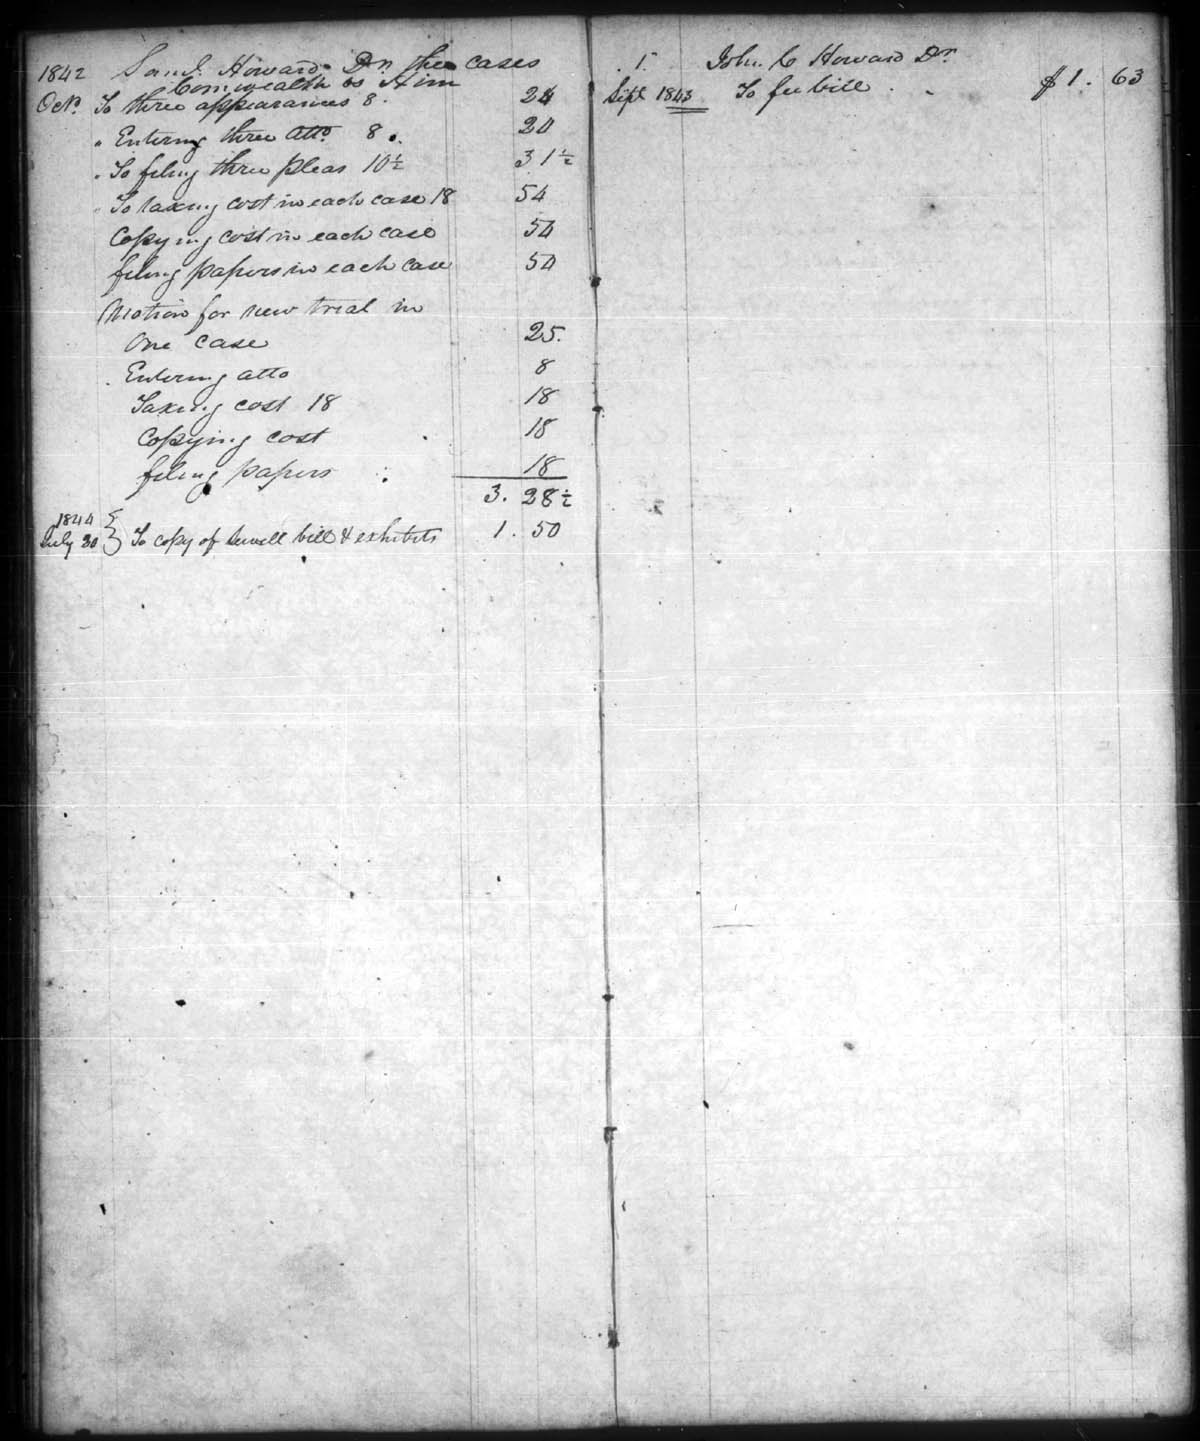 1842 Saml. Howard Dr. three cases
Comwealth vs Him
Octr. To three appearances 8. 24
" Entering three atto. 8. 24
" To filing three pleas 10½ 31½
" To taxing cost in each case 18 54
Copying cost in each case 54
filing papers in each case 54
Motion for new trial in
One case 25.
Entering atto 8
Taxing cost 18 18
Copying cost 18
filing papers 18
3. 28½
1844
July 20 } To copy of bill & exhibits 1. 50
1. John C Howard Dr.
Sept 1843 To fee bill $1. 63